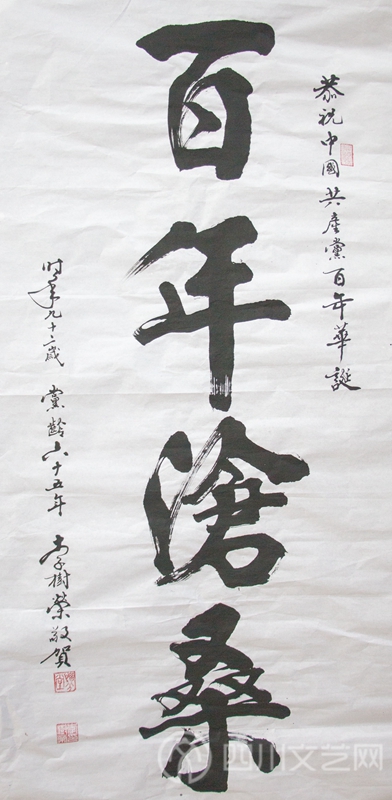 恭祝中國共產黨百年華誕
百年滄桑
时年九十二歲 黨齡六十五年 李樹榮敬賀
四川文艺网